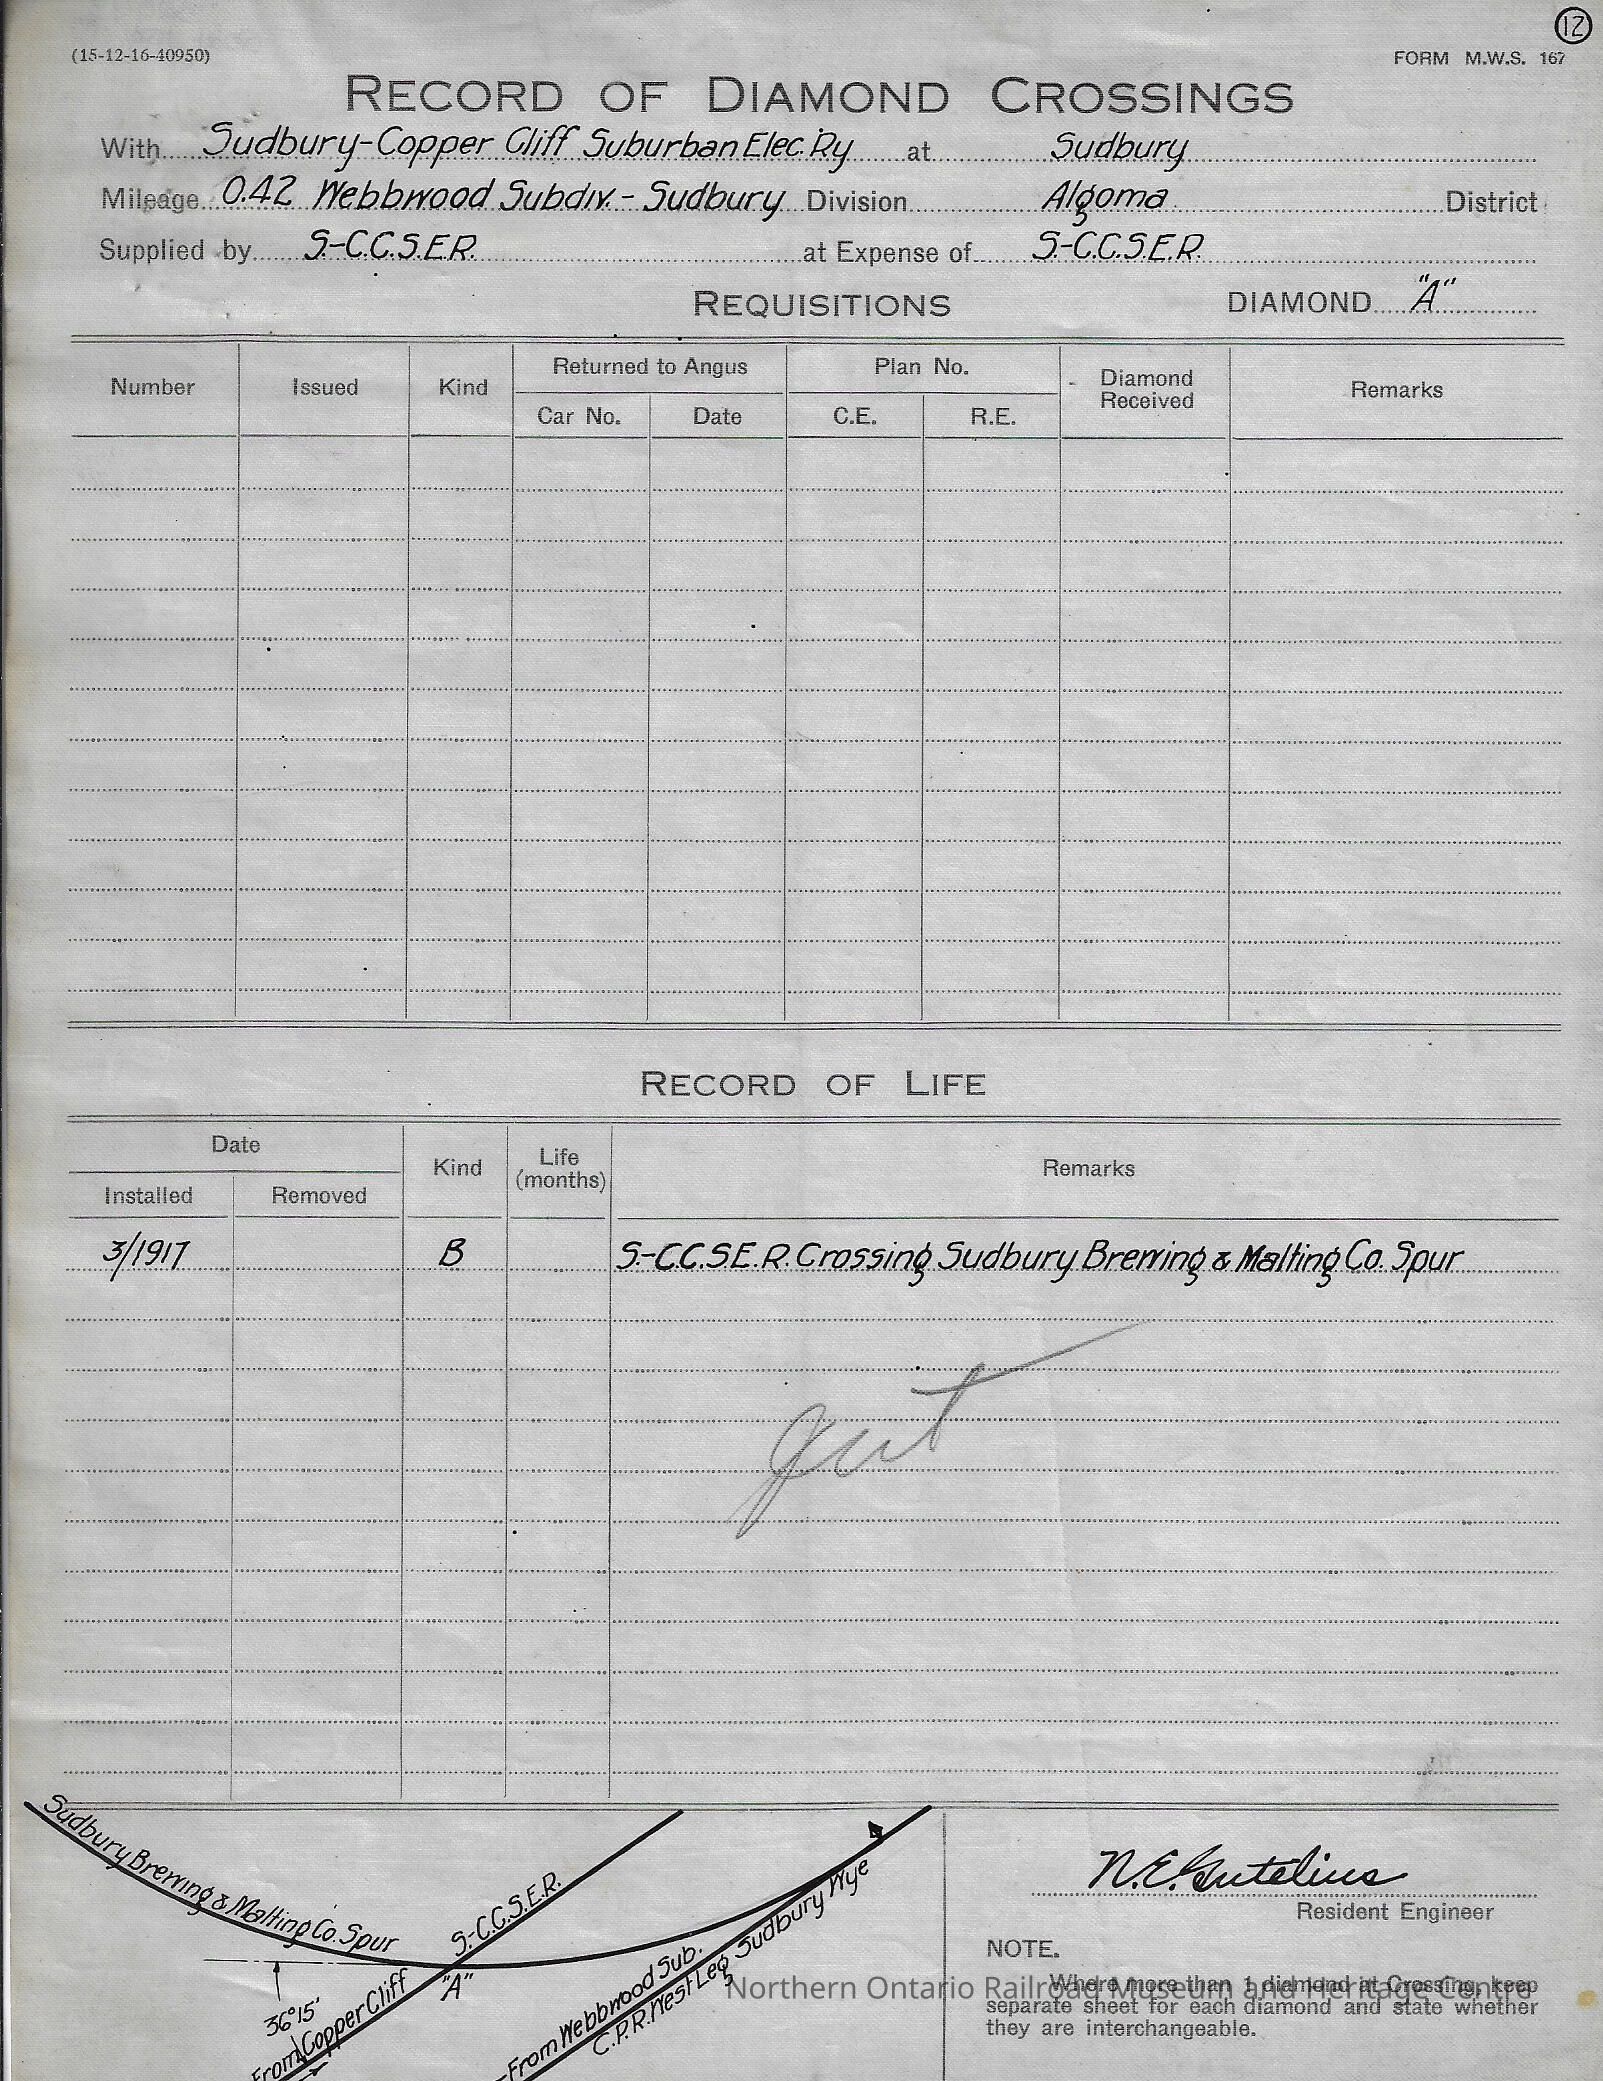 12
(15-12-16-40950)
FORM M.W.S. 167
RECORD OF DIAMOND CROSSINGS
With Sudbury-Copper Cliff Suburban Elec. Ry at Sudbury
Mileage 0.42 Webbwood Subdiv. - Sudbury Division Algoma District
Supplied by S-C.C.S.E.R. at Expense of S-C.C.S.E.R.
REQUISITIONS
DIAMOND "A"
Number Issued Kind Returned to Angus Plan No. Diamond Received Remarks
Car No. Date C.E. R.E.
RECORD OF LIFE
Date Kind Life (months) Remarks
Installed Removed
3/1917 B S.-C.C.S.E.R. Crossing Sudbury Brewing & Malting Co. Spur
Sudbury Brewing & Malting Co. Spur
S.-C.C.S.E.R.
"A"
36°15'
From Copper Cliff
From Webbwood Sub.
C.P.R. West Leg Sudbury Wye
N.E. Gutelius
Resident Engineer
NOTE.
Where more than 1 diamond at Crossing, keep
separate sheet for each diamond and state whether
they are interchangeable.
Northern Ontario Railroad Museum and Heritage Centre